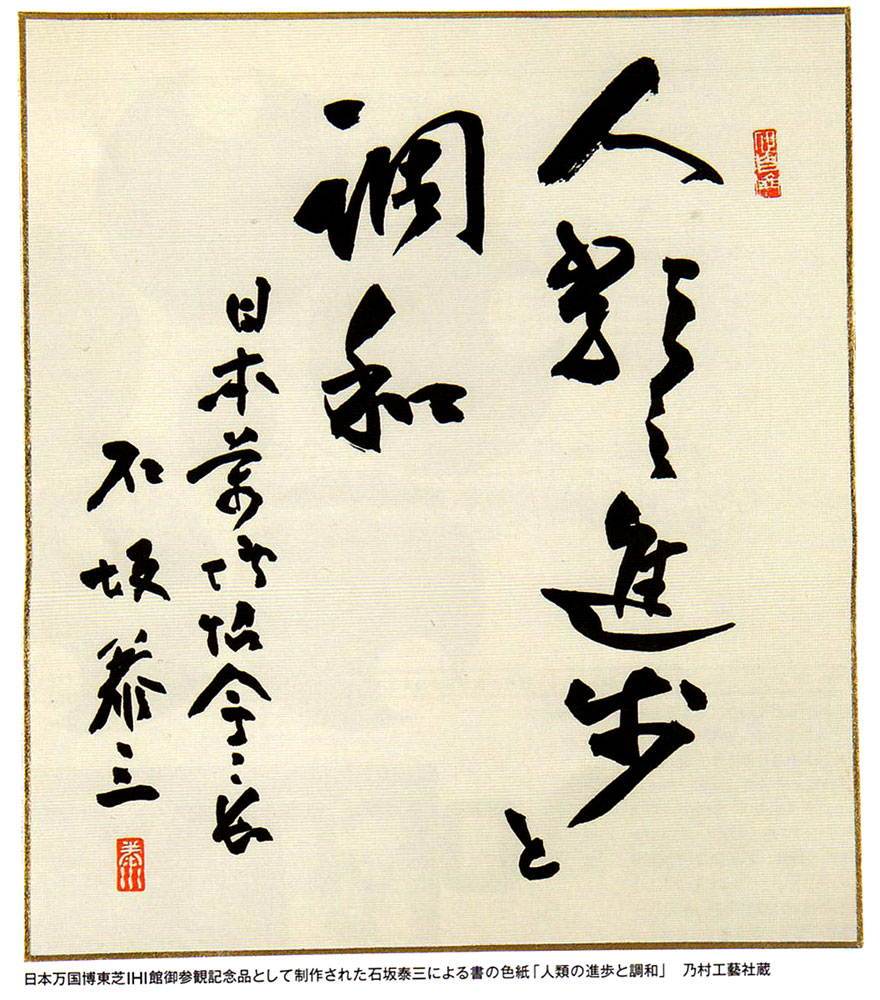 人類進歩と
調和
日本萬博協会々長
石坂泰三
泰三
日本万国博東芝IHI館御参観記念品として制作された石坂泰三による書の色紙「人類の進歩と調和」　乃村工藝社蔵